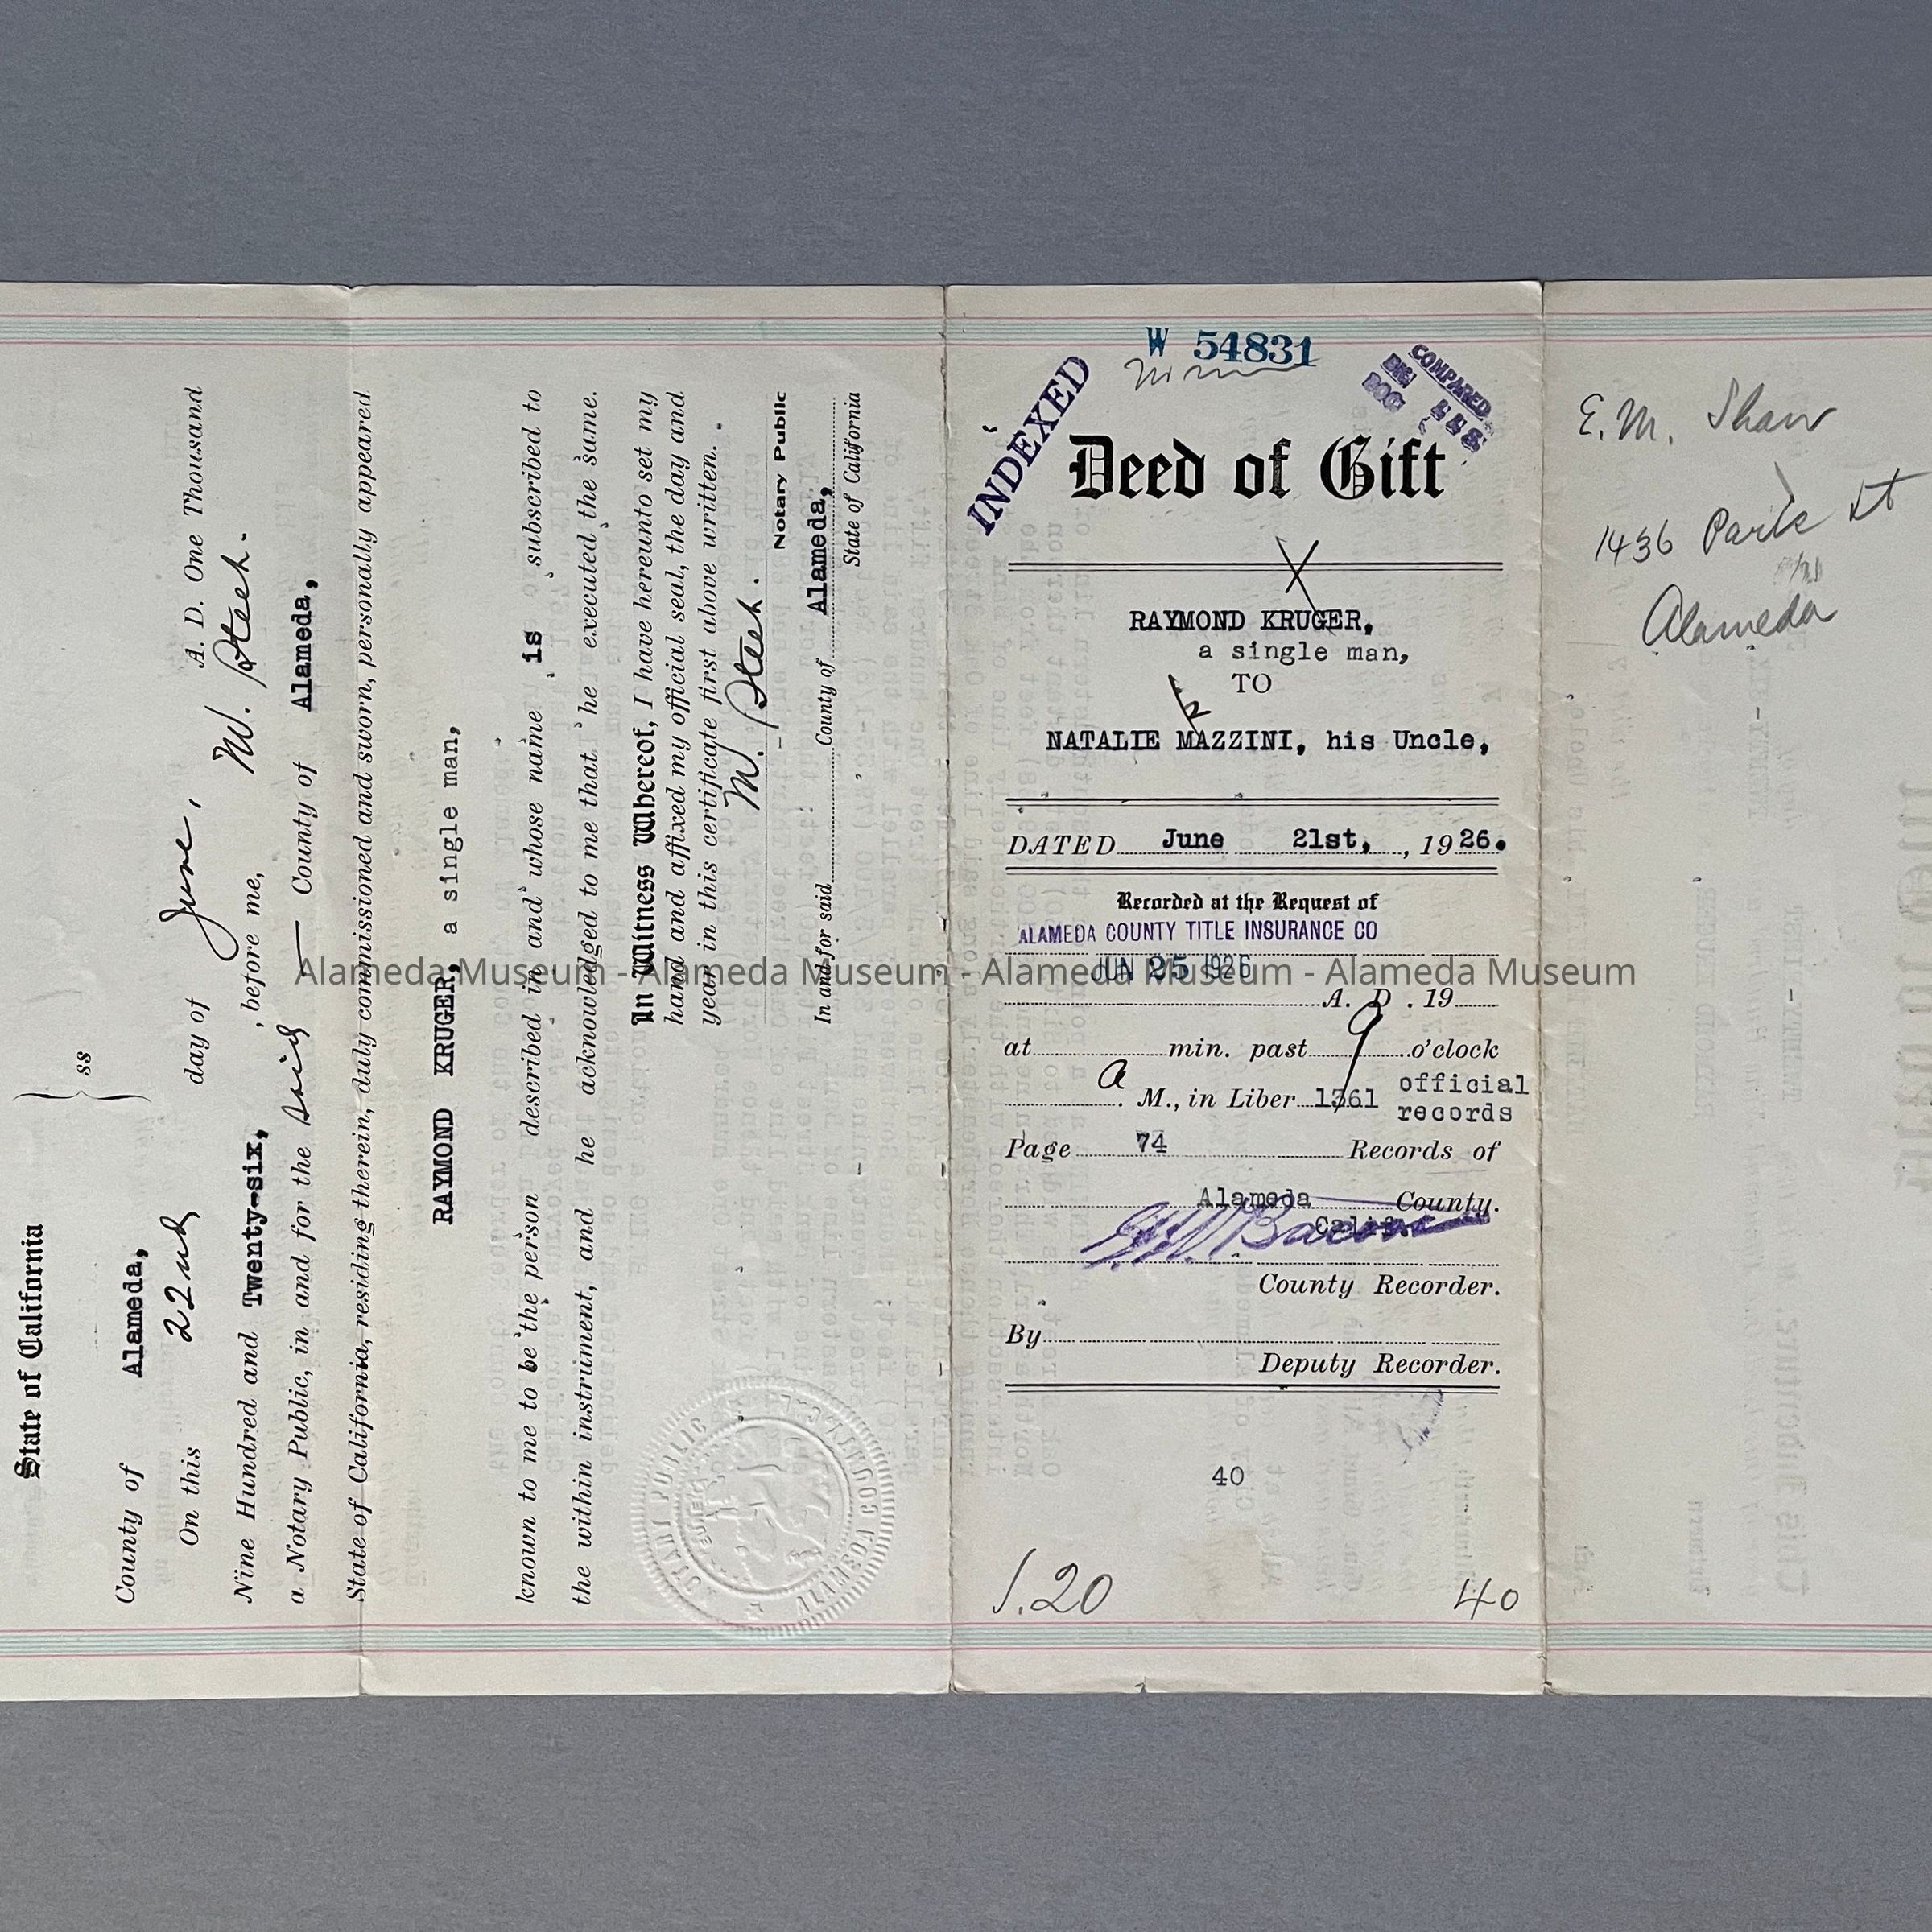 State of California
ss
County of Alameda,
On this 22nd day of June, A. D. One Thousand
Nine Hundred and Twenty-six, , before me, M. Steeh.
a Notary Public, in and for the said County of Alameda,
State of California, residing therein, duly commissioned and sworn, personally appeared
RAYMOND KRUGER, a single man,
known to me to be the person described in and whose name is subscribed to
the within instrument, and he acknowledged to me that he executed the same.
In Witness Whereof, I have hereunto set my
hand and affixed my official seal, the day and
year in this certificate first above written.
M. Steeh.
Notary Public
In and for said County of Alameda,
State of California
NOTARY PUBLIC
EUREKA
ALAMEDA COUNTY, CAL.
W 54831
INDEXED
COMPARED
Deed of Gift
RAYMOND KRUGER,
a single man,
TO
NATALIE MAZZINI, his Uncle,
DATED June 21st, , 1926.
Recorded at the Request of
ALAMEDA COUNTY TITLE INSURANCE CO
JUN 25 1926
A. D. 19
at min. past 9 o'clock
a M., in Liber 1361 official
records
Page 74 Records of
Alameda County.
Calif.
G. W. Bacon
County Recorder.
By
Deputy Recorder.
40
1.20 40
E. M. Shaw
1436 Park St
Alameda
Alameda Museum - Alameda Museum - Alameda Museum - Alameda Museum